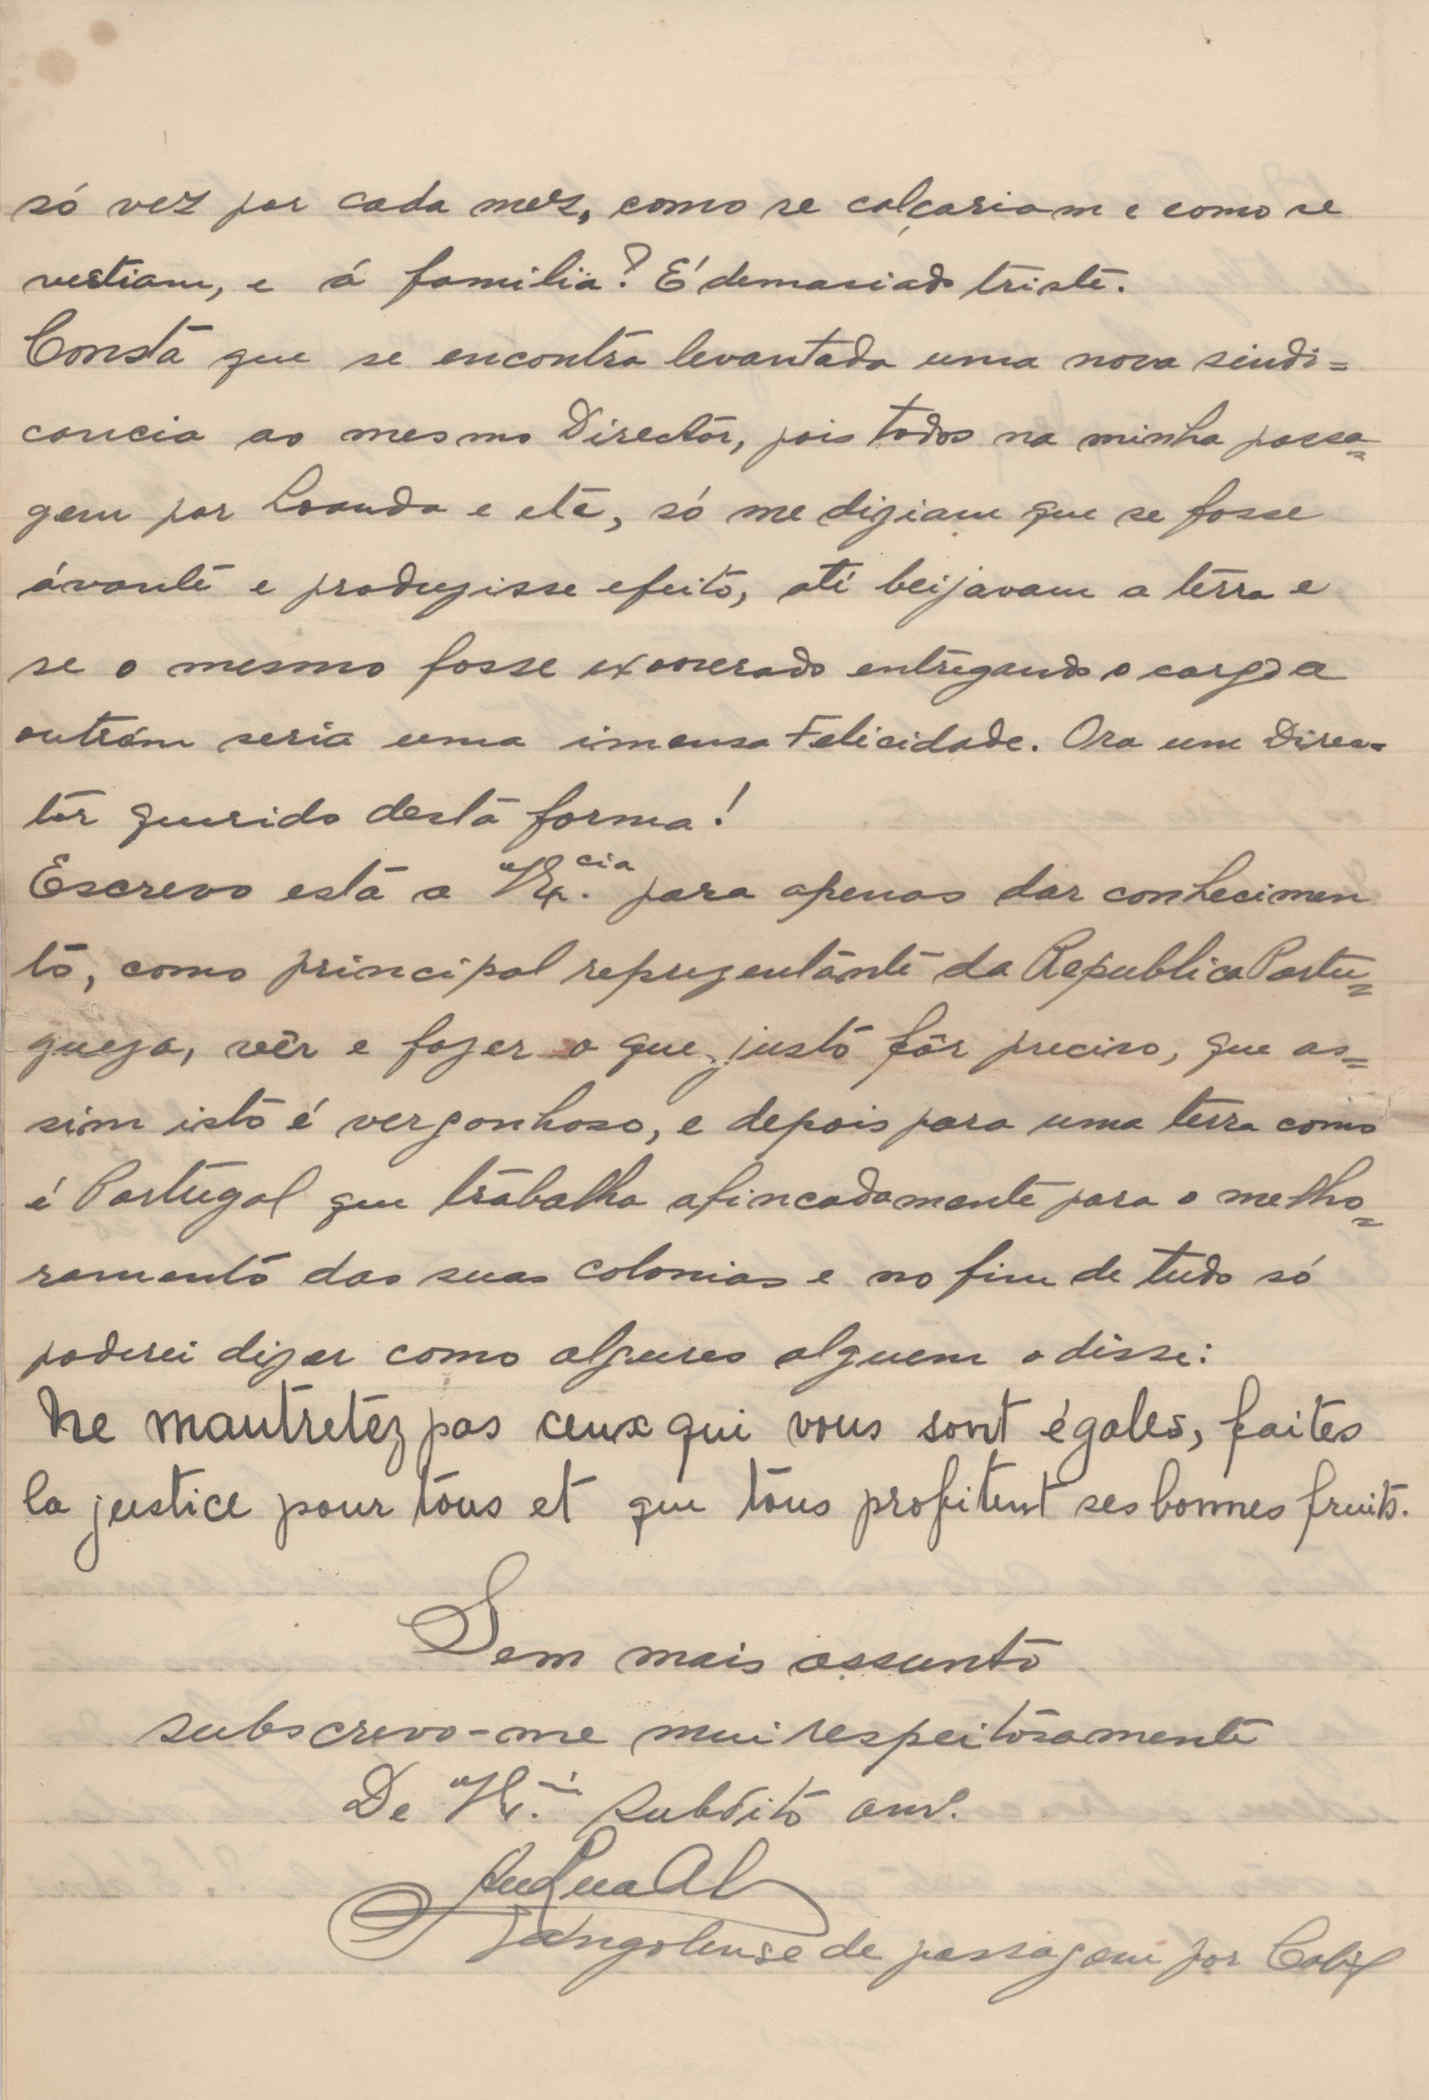 só vez por cada mez, como se calçariam e como se
vestiam, e á familia? É demasiado triste.
Consta que se encontra levantada uma nova sindi=
cancia ao mesmo Director, pois todos na minha passa=
gem por Loanda e etc, só me diziam que se fosse
ávante e produzisse efeito, até beijavam a terra e
se o mesmo fosse exonerado entregando o cargo a
outrém seria uma imensa Felicidade. Ora um Direc=
tor querido desta forma!
Escrevo esta a V. Ex.cia para apenas dar conhecimen
to, como principal reprezentante da Republica Portu=
gueza, vêr e fazer o que justo fôr preciso, que as=
sim isto é vergonhoso, e depois para uma terra como
é Portugal que trabalha afincadamente para o melho=
ramento das suas colonias e no fim de tudo só
poderei dizer como algures alguem o disse:
Ne mautretez pas ceux qui vous sont égales, faites
la justice pour tous et que tous profitent ses bonnes fruits.
Sem mais assunto
subscrevo-me mui respeitosamente
De V. Ex. subdito
Angolense de passagem por